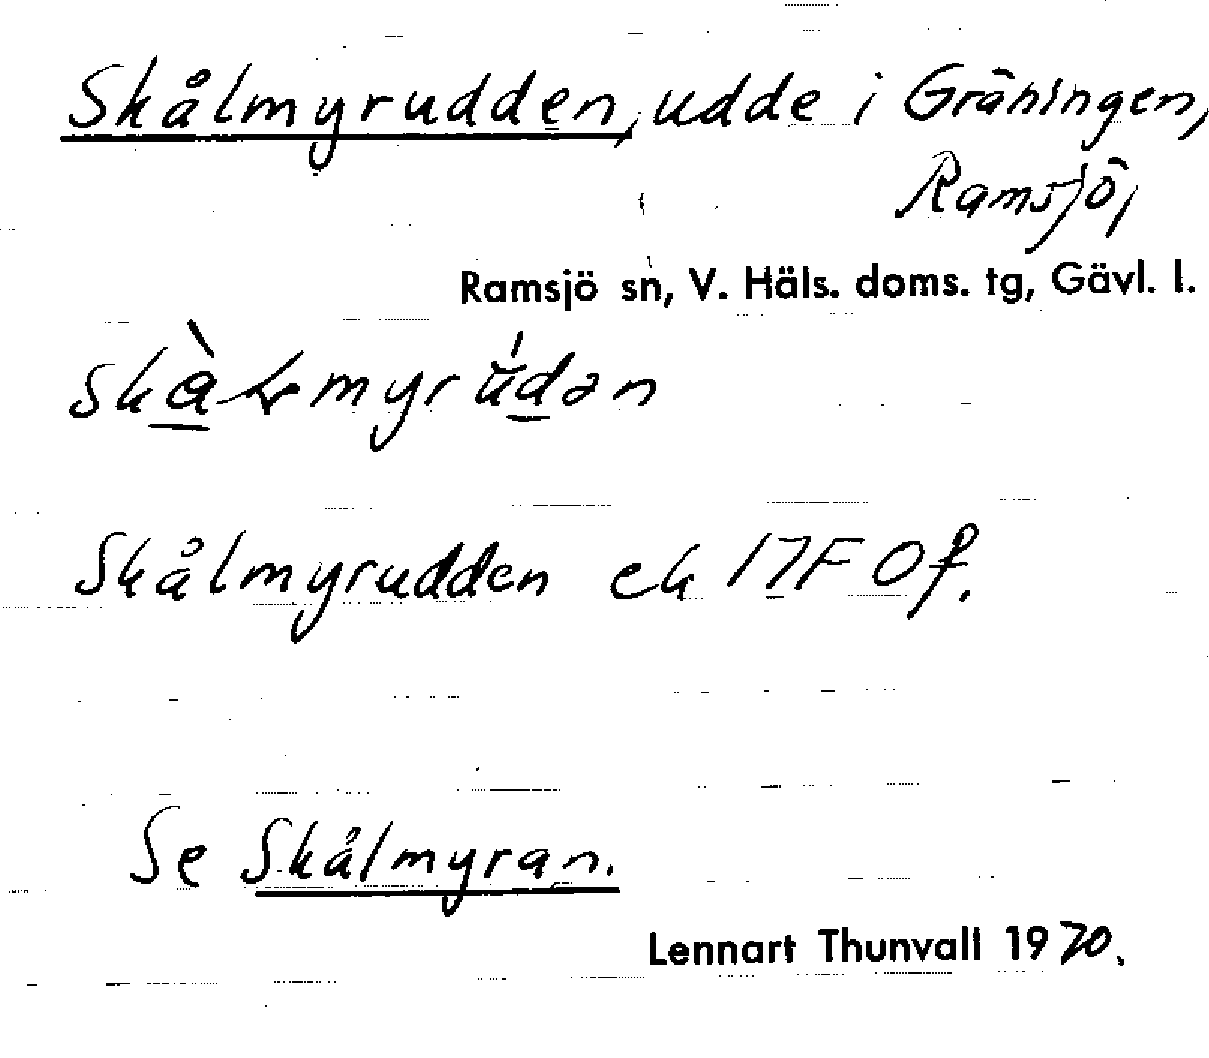 Skålmyrudden, udde i Gräningen,
Ramsjö,
Ramsjö sn, V. Häls. doms. tg, Gävl. l.
Skålmyrudden ek 17F 0f.
Se Skålmyran.
Lennart Thunvall 1970.